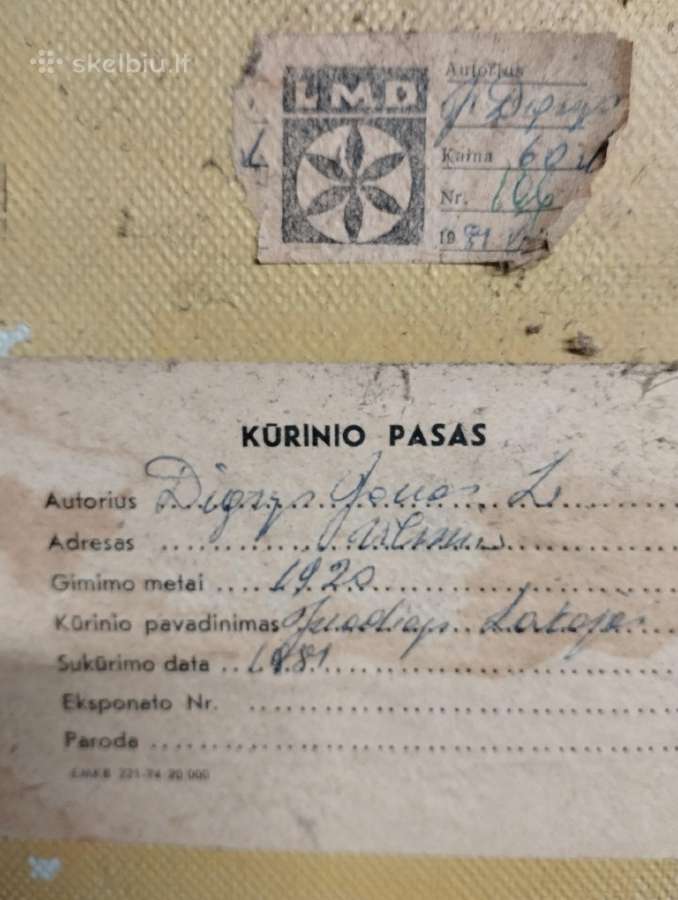 skelbiu.lt
LMD
Autorius
J. Digrys
Kaina 60
Nr. 166
19
KŪRINIO PASAS
Autorius Digrys Jonas L
Adresas Vilnius
Gimimo metai 192
Kūrinio pavadinimas Juodieji Lakajai
Sukūrimo data 1981
Eksponato Nr.
Paroda
LMKB 221-74 20 000